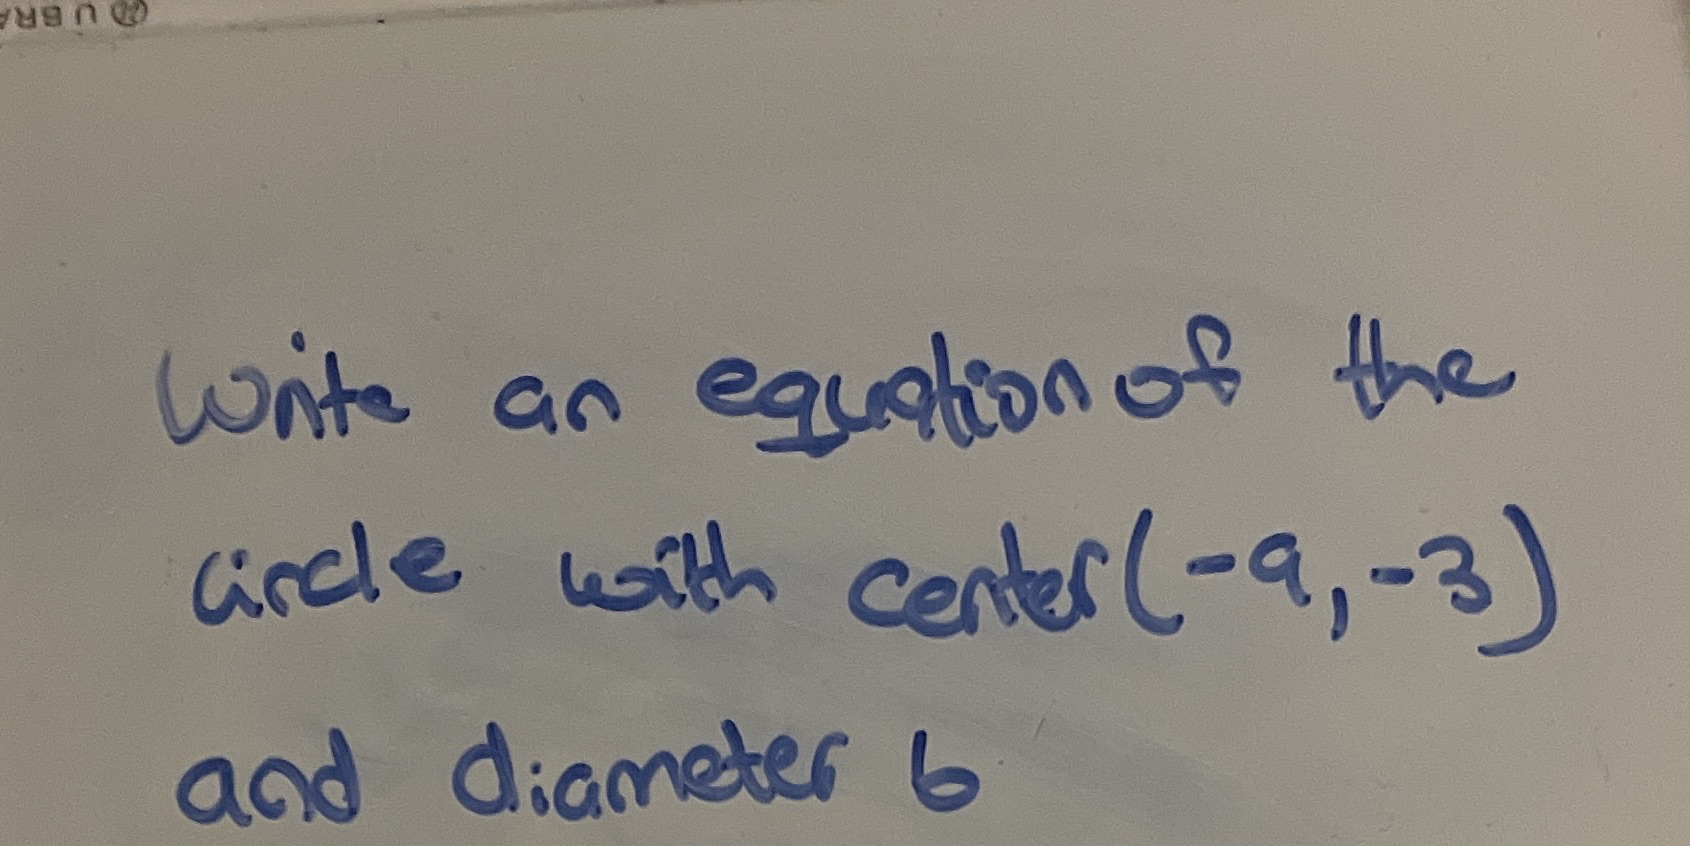 Write an equation of the
circle with center(-9,-3)
and diameter 6